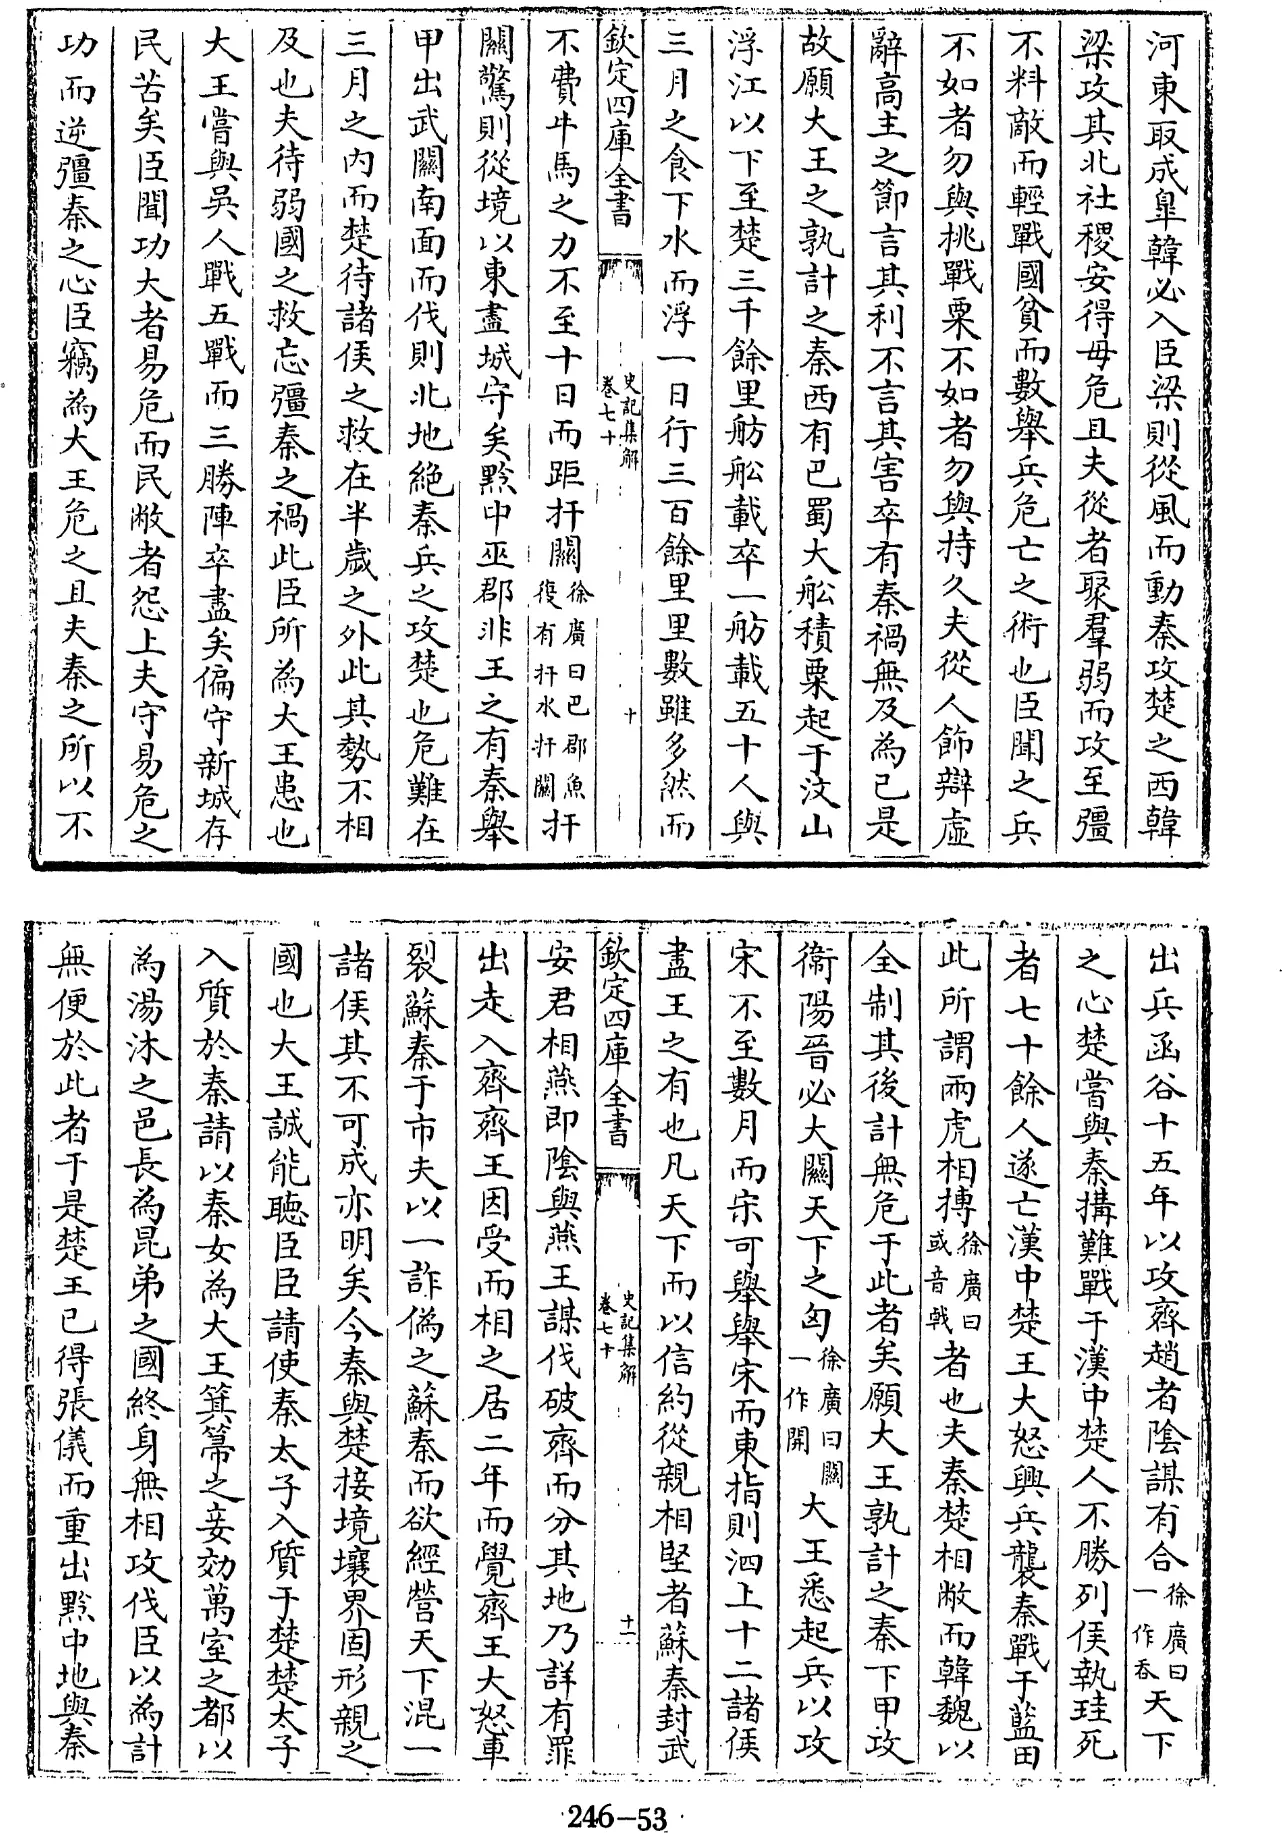 河東取成臯韓必入臣梁則從風而動秦攻楚之西韓
梁攻其北社稷安得毋危且夫從者聚羣弱而攻至彊
不料敵而輕戰國貧而數舉兵危亡之術也臣聞之兵
不如者勿與挑戰粟不如者勿與持久夫從人飾辯虛
辭高主之節言其利不言其害卒有秦禍無及為已是
故願大王之孰計之秦西有巴蜀大船積粟起于汶山
浮江以下至楚三千餘里舫船載卒一舫載五十人與
三月之食下水而浮一日行三百餘里里數雖多然而
欽定四庫全書
史記集解
卷七十
十
不費牛馬之力不至十日而距扞關徐廣曰巴郡魚復有扞水扞關扞
關驚則從境以東盡城守矣黔中巫郡非王之有秦舉
甲出武關南面而伐則北地絶秦兵之攻楚也危難在
三月之内而楚待諸侯之救在半歲之外此其勢不相
及也夫待弱國之救忘彊秦之禍此臣所為大王患也
大王嘗與吳人戰五戰而三勝陣卒盡矣偏守新城存
民苦矣臣聞功大者易危而民敝者怨上夫守易危之
功而逆彊秦之心臣竊為大王危之且夫秦之所以不
出兵函谷十五年以攻齊趙者陰謀有合徐廣曰一作吞天下
之心楚嘗與秦搆難戰于漢中楚人不勝列侯執珪死
者七十餘人遂亡漢中楚王大怒興兵襲秦戰于藍田
此所謂兩虎相搏徐廣曰或音戟者也夫秦楚相敝而韓魏以
全制其後計無危于此者矣願大王孰計之秦下甲攻
衛陽晉必大關天下之匈徐廣曰關一作開大王悉起兵以攻
宋不至數月而宋可舉舉宋而東指則泗上十二諸侯
盡王之有也凡天下而以信約從親相堅者蘇秦封武
欽定四庫全書
史記集解
卷七十
十一
安君相燕即陰與燕王謀伐破齊而分其地乃詳有罪
出走入齊齊王因受而相之居二年而覺齊王大怒車
裂蘇秦于市夫以一詐偽之蘇秦而欲經營天下混一
諸侯其不可成亦明矣今秦與楚接境壤界固形親之
國也大王誠能聽臣臣請使秦太子入質于楚楚太子
入質於秦請以秦女為大王箕箒之妾効萬室之都以
為湯沐之邑長為昆弟之國終身無相攻伐臣以為計
無便於此者于是楚王已得張儀而重出黔中地與秦
246-53